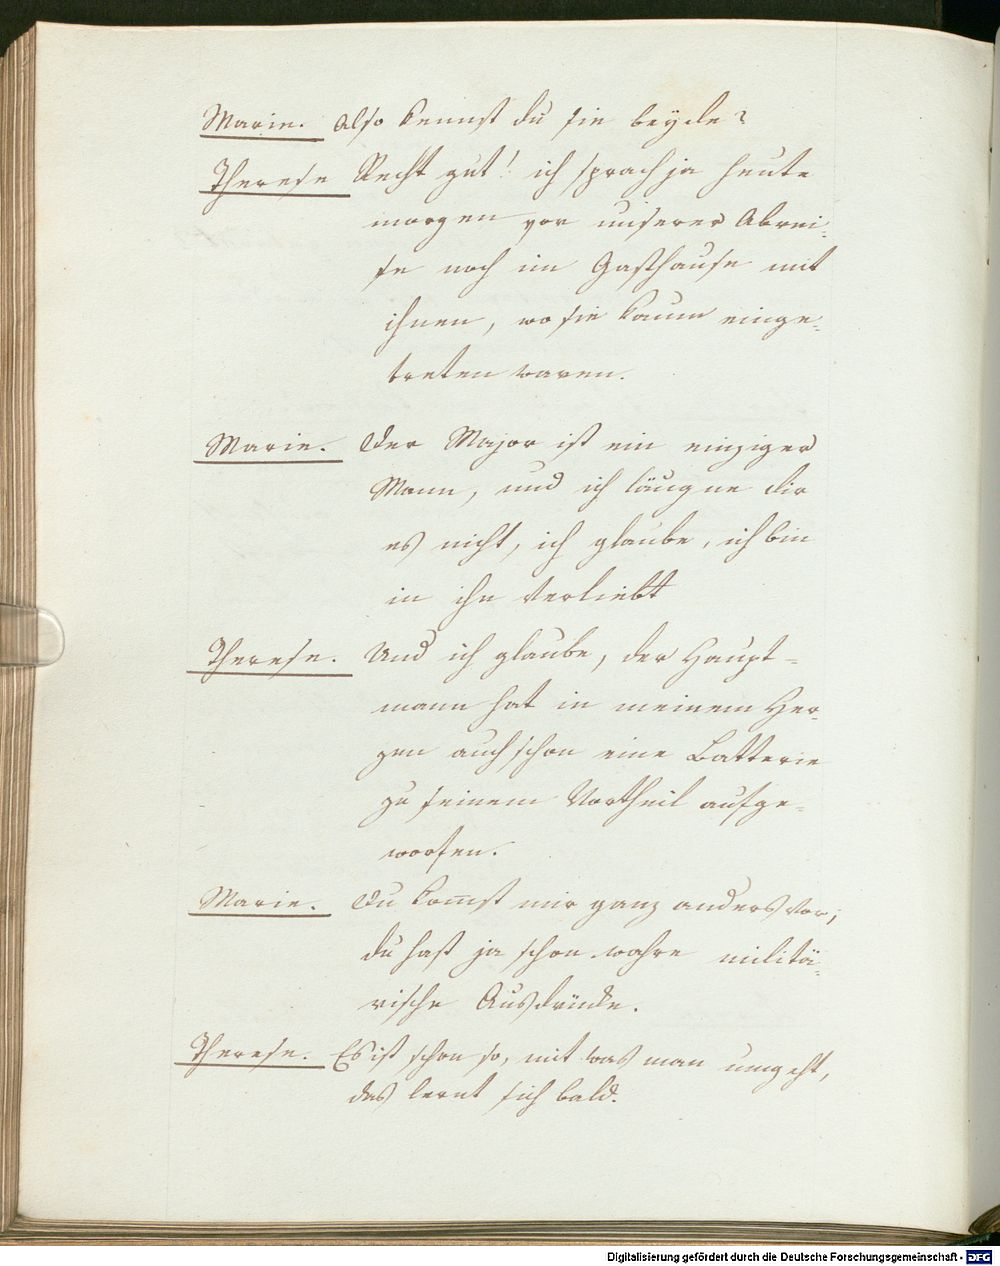 Marie. Also kennst du sie beyde?
Therese Recht gut! ich sprach ja heute
morgen vor unserer Abrei-
se noch im Gasthause mit
ihnen, wo sie kaum einge-
treten waren.
Marie. Der Major ist ein einziger
Mann, und ich läugne dir
es nicht, ich glaube, ich bin
in ihn verliebt
Therese. Und ich glaube, der Haupt-
mann hat in meinem Her-
zen auch schon eine Batterie
zu seinem Vortheil aufge-
worfen.
Marie. Du kom̅st mir ganz anders vor;
du hast ja schon wahre militä-
rische Ausdrücke.
Therese. Es ist schon so, mit was man umgeht,
das lernt sich bald.
Digitalisierung gefördert durch die Deutsche Forschungsgemeinschaft - DFG